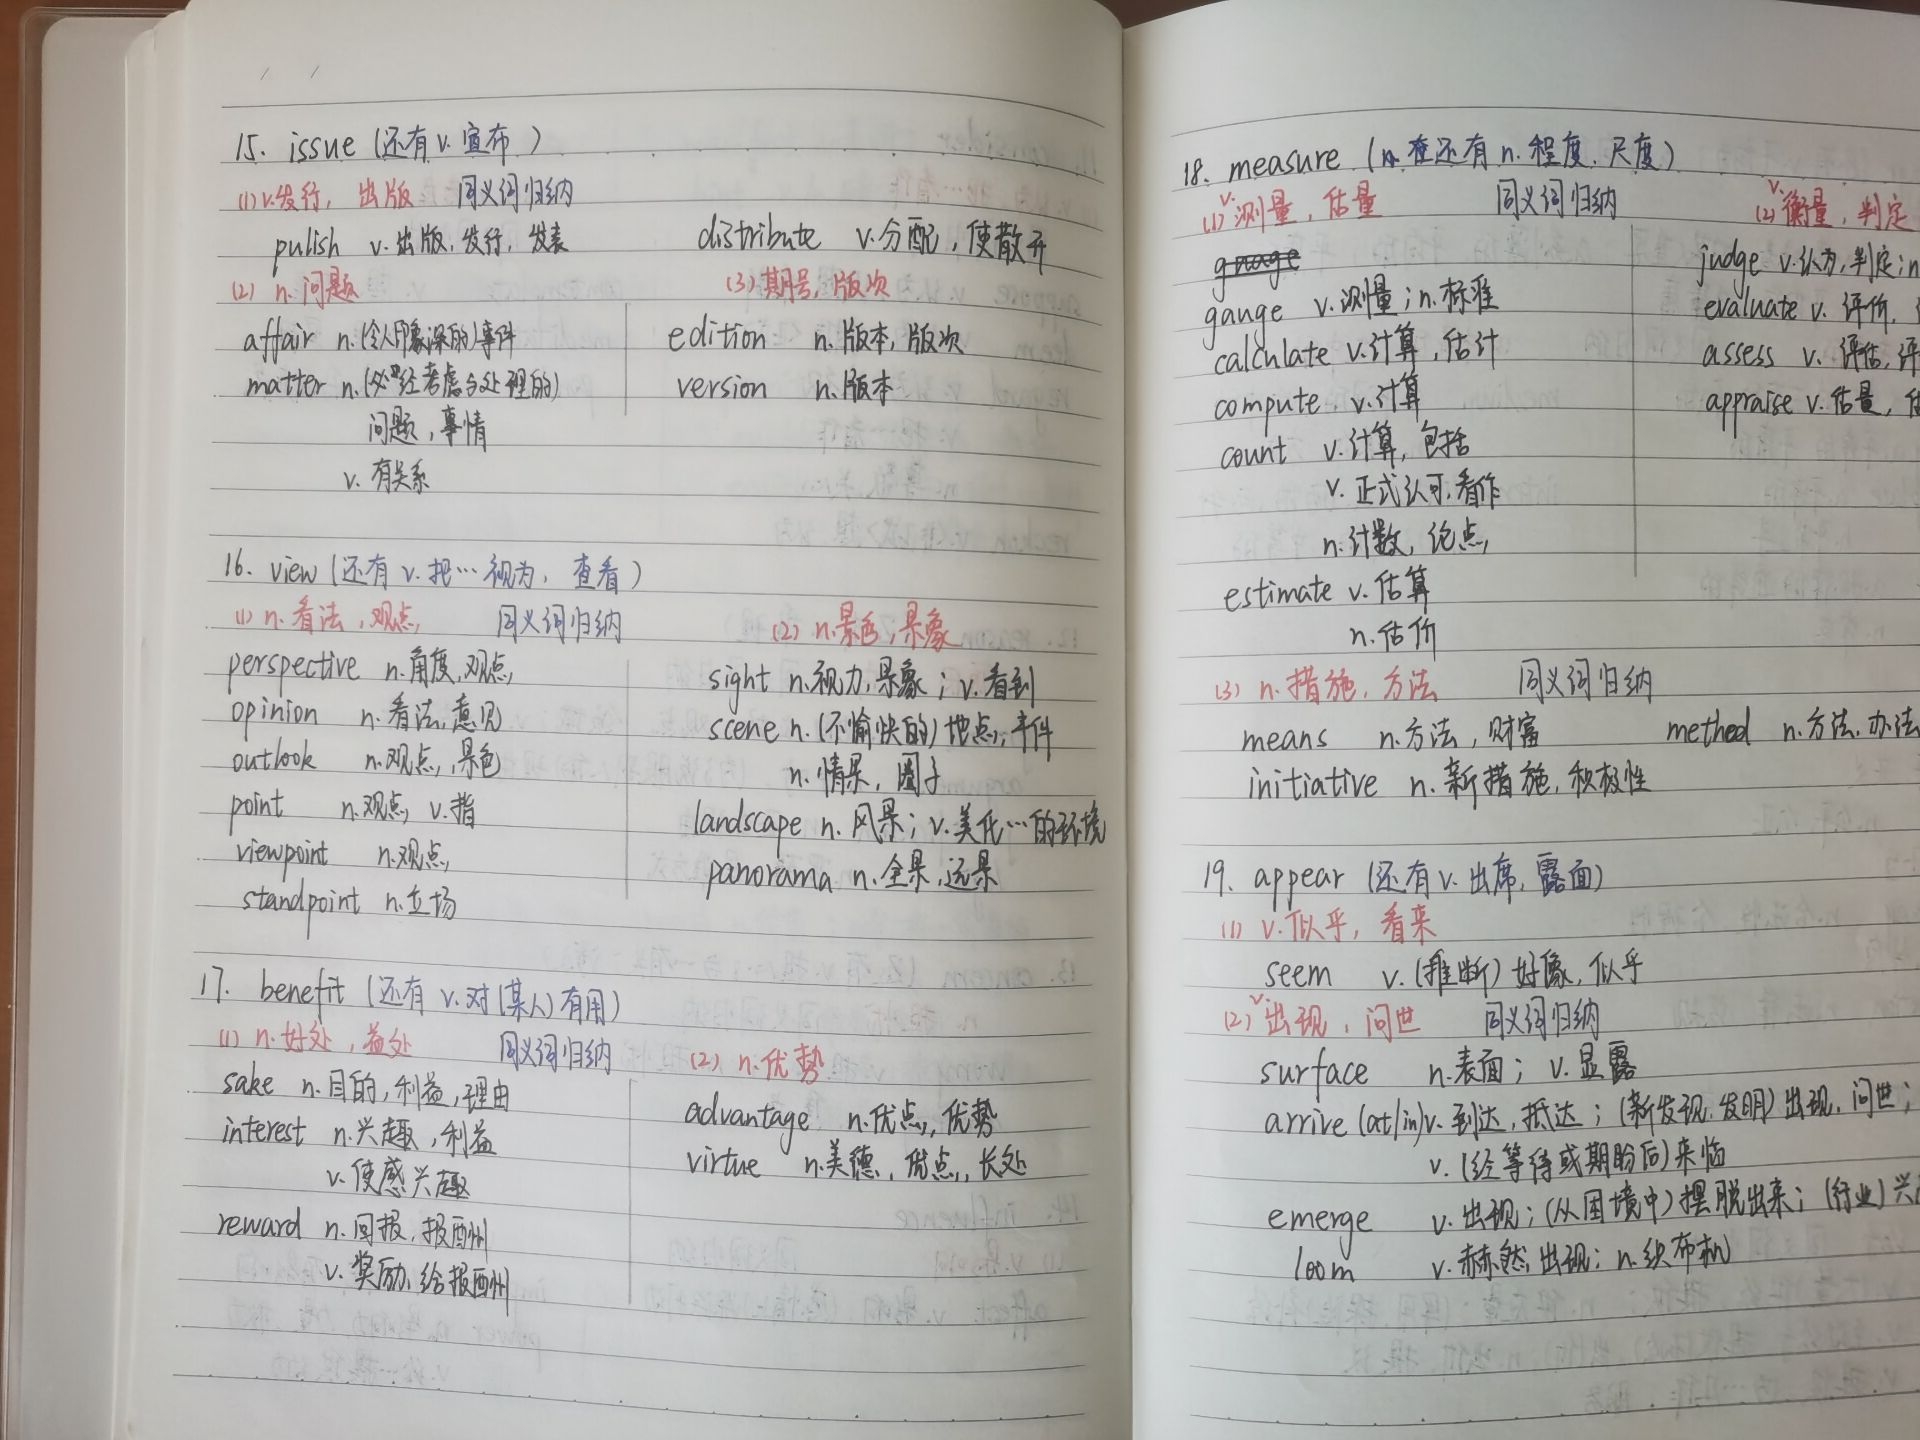 15. issue (还有 v. 宣布)
(1) v.发行, 出版 同义词归纳
pulish v. 出版, 发行, 发表 distribute v.分配, 使散开
(2) n. 问题 (3) 期号, 版次
affair n.(令人印象深的)事件 edition n.版本, 版次
matter n.(必须经考虑与处理的) version n.版本
问题, 事情
v. 有关系
16. view (还有 v. 把…视为, 查看)
(1) n. 看法, 观点 同义词归纳 (2) n.景色, 景象
perspective n.角度, 观点 sight n.视力, 景象; v.看到
opinion n.看法, 意见 scene n.(不愉快的)地点, 事件
outlook n.观点, 景色 n.情景, 圈子
point n.观点, v.指 landscape n. 风景; v.美化…的环境
viewpoint n.观点 panorama n.全景, 远景
standpoint n.立场
17. benefit (还有 v.对(某人)有用)
(1) n.好处, 益处 同义词归纳 (2) n.优势
sake n.目的, 利益, 理由 advantage n.优点, 优势
interest n.兴趣, 利益 virtue n.美德, 优点, 长处
v.使感兴趣
reward n.回报, 报酬
v.奖励, 给报酬
18. measure (还有 n.程度, 尺度)
(1) v.测量, 估量 同义词归纳 (2) v.衡量, 判定
judge v.认为, 判定; n
gauge v.测量; n.标准 evaluate v. 评价,
calculate v.计算, 估计 assess v. 评估, 评
compute v.计算 appraise v.估量, 估
count v.计算, 包括
v. 正式认可, 看作
n.计数, 论点
estimate v. 估算
n.估价
(3) n. 措施, 方法 同义词归纳
means n.方法, 财富 method n.方法, 办法
initiative n.新措施, 积极性
19. appear (还有 v. 出席, 露面)
(1) v.似乎, 看来
seem v.(推断)好像, 似乎
(2) v.出现, 问世 同义词归纳
surface n.表面; v.显露
arrive (at/in) v. 到达, 抵达; (新发现, 发明)出现, 问世;
v. (经等待或期盼后)来临
emerge v. 出现; (从困境中)摆脱出来; (行业)兴
loom v.赫然出现; n.织布机